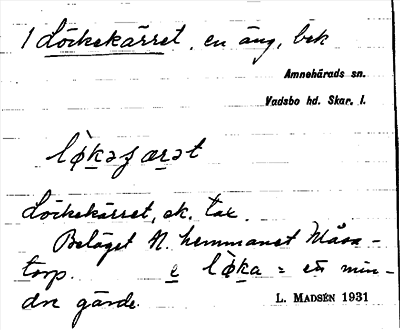 1 Löckekärret, en äng, bek
Amnehärads sn.
Vadsbo hd. Skar. l.
lø̀kəʃærət
Löckekärret, ek. tax.
Beläget N. hemmanet Måsa-
torp. e lø̀ka = en min-
dre gärde.
L. MADSÉN 1931